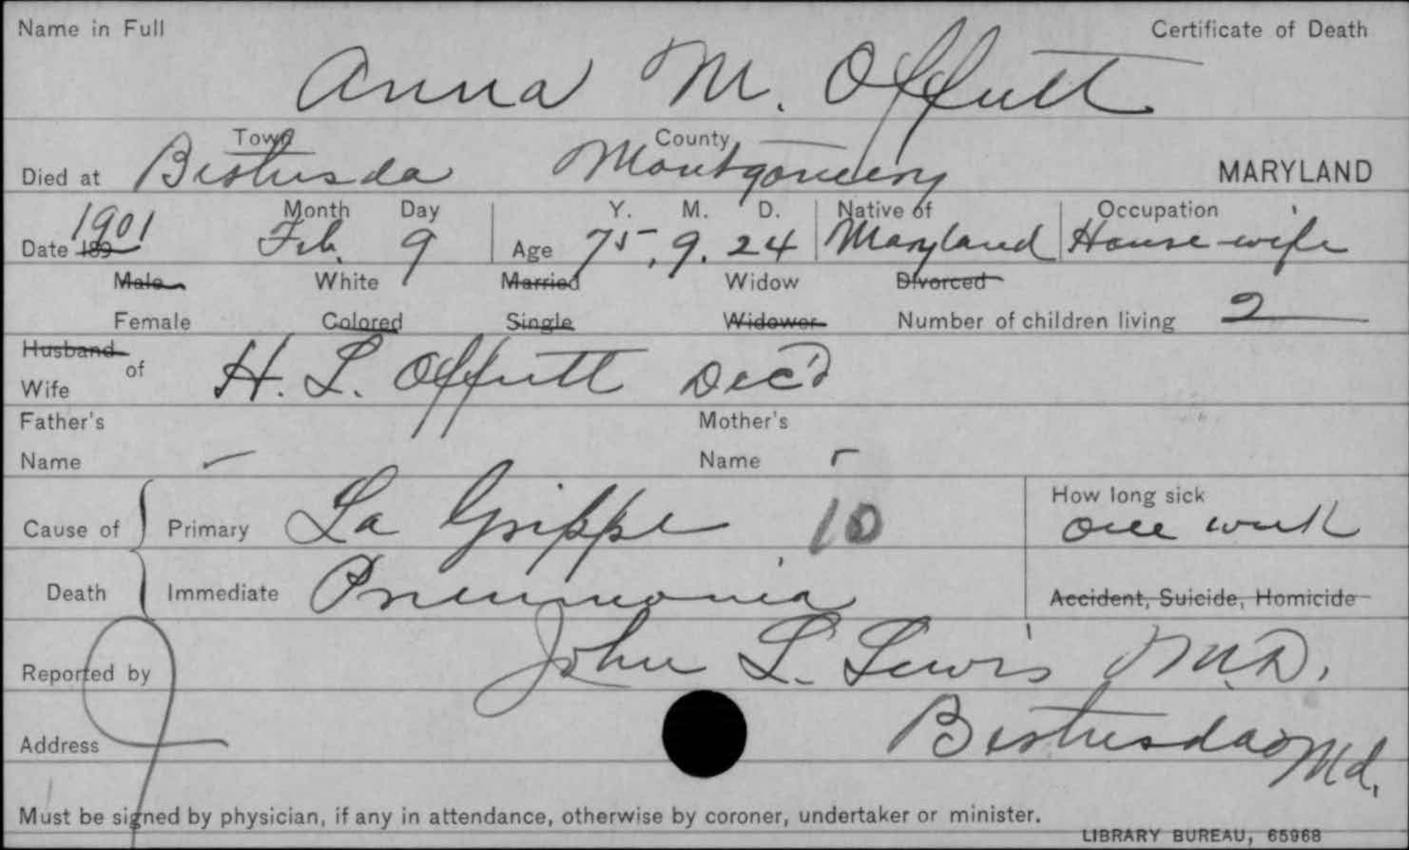 Name in Full Certificate of Death
Anna M. Offutt
Town County
Died at Bethesda Montgomery MARYLAND
1901 Month Day Y. M. D. Native of Occupation
Date 189 Feb. 9 Age 75. 9. 24 Maryland House-wife
Male White Married Widow Divorced
Female Colored Single Widower Number of children living 2
Husband of
Wife H. L. Offutt Dec'd
Father's Mother's
Name – Name –
Cause of Primary La Grippe 10 How long sick one week
Death Immediate Pneumonia Accident, Suicide, Homicide
Reported by John L. Lewis M.D.
Address Bethesda Md.
Must be signed by physician, if any in attendance, otherwise by coroner, undertaker or minister.
LIBRARY BUREAU, 65968